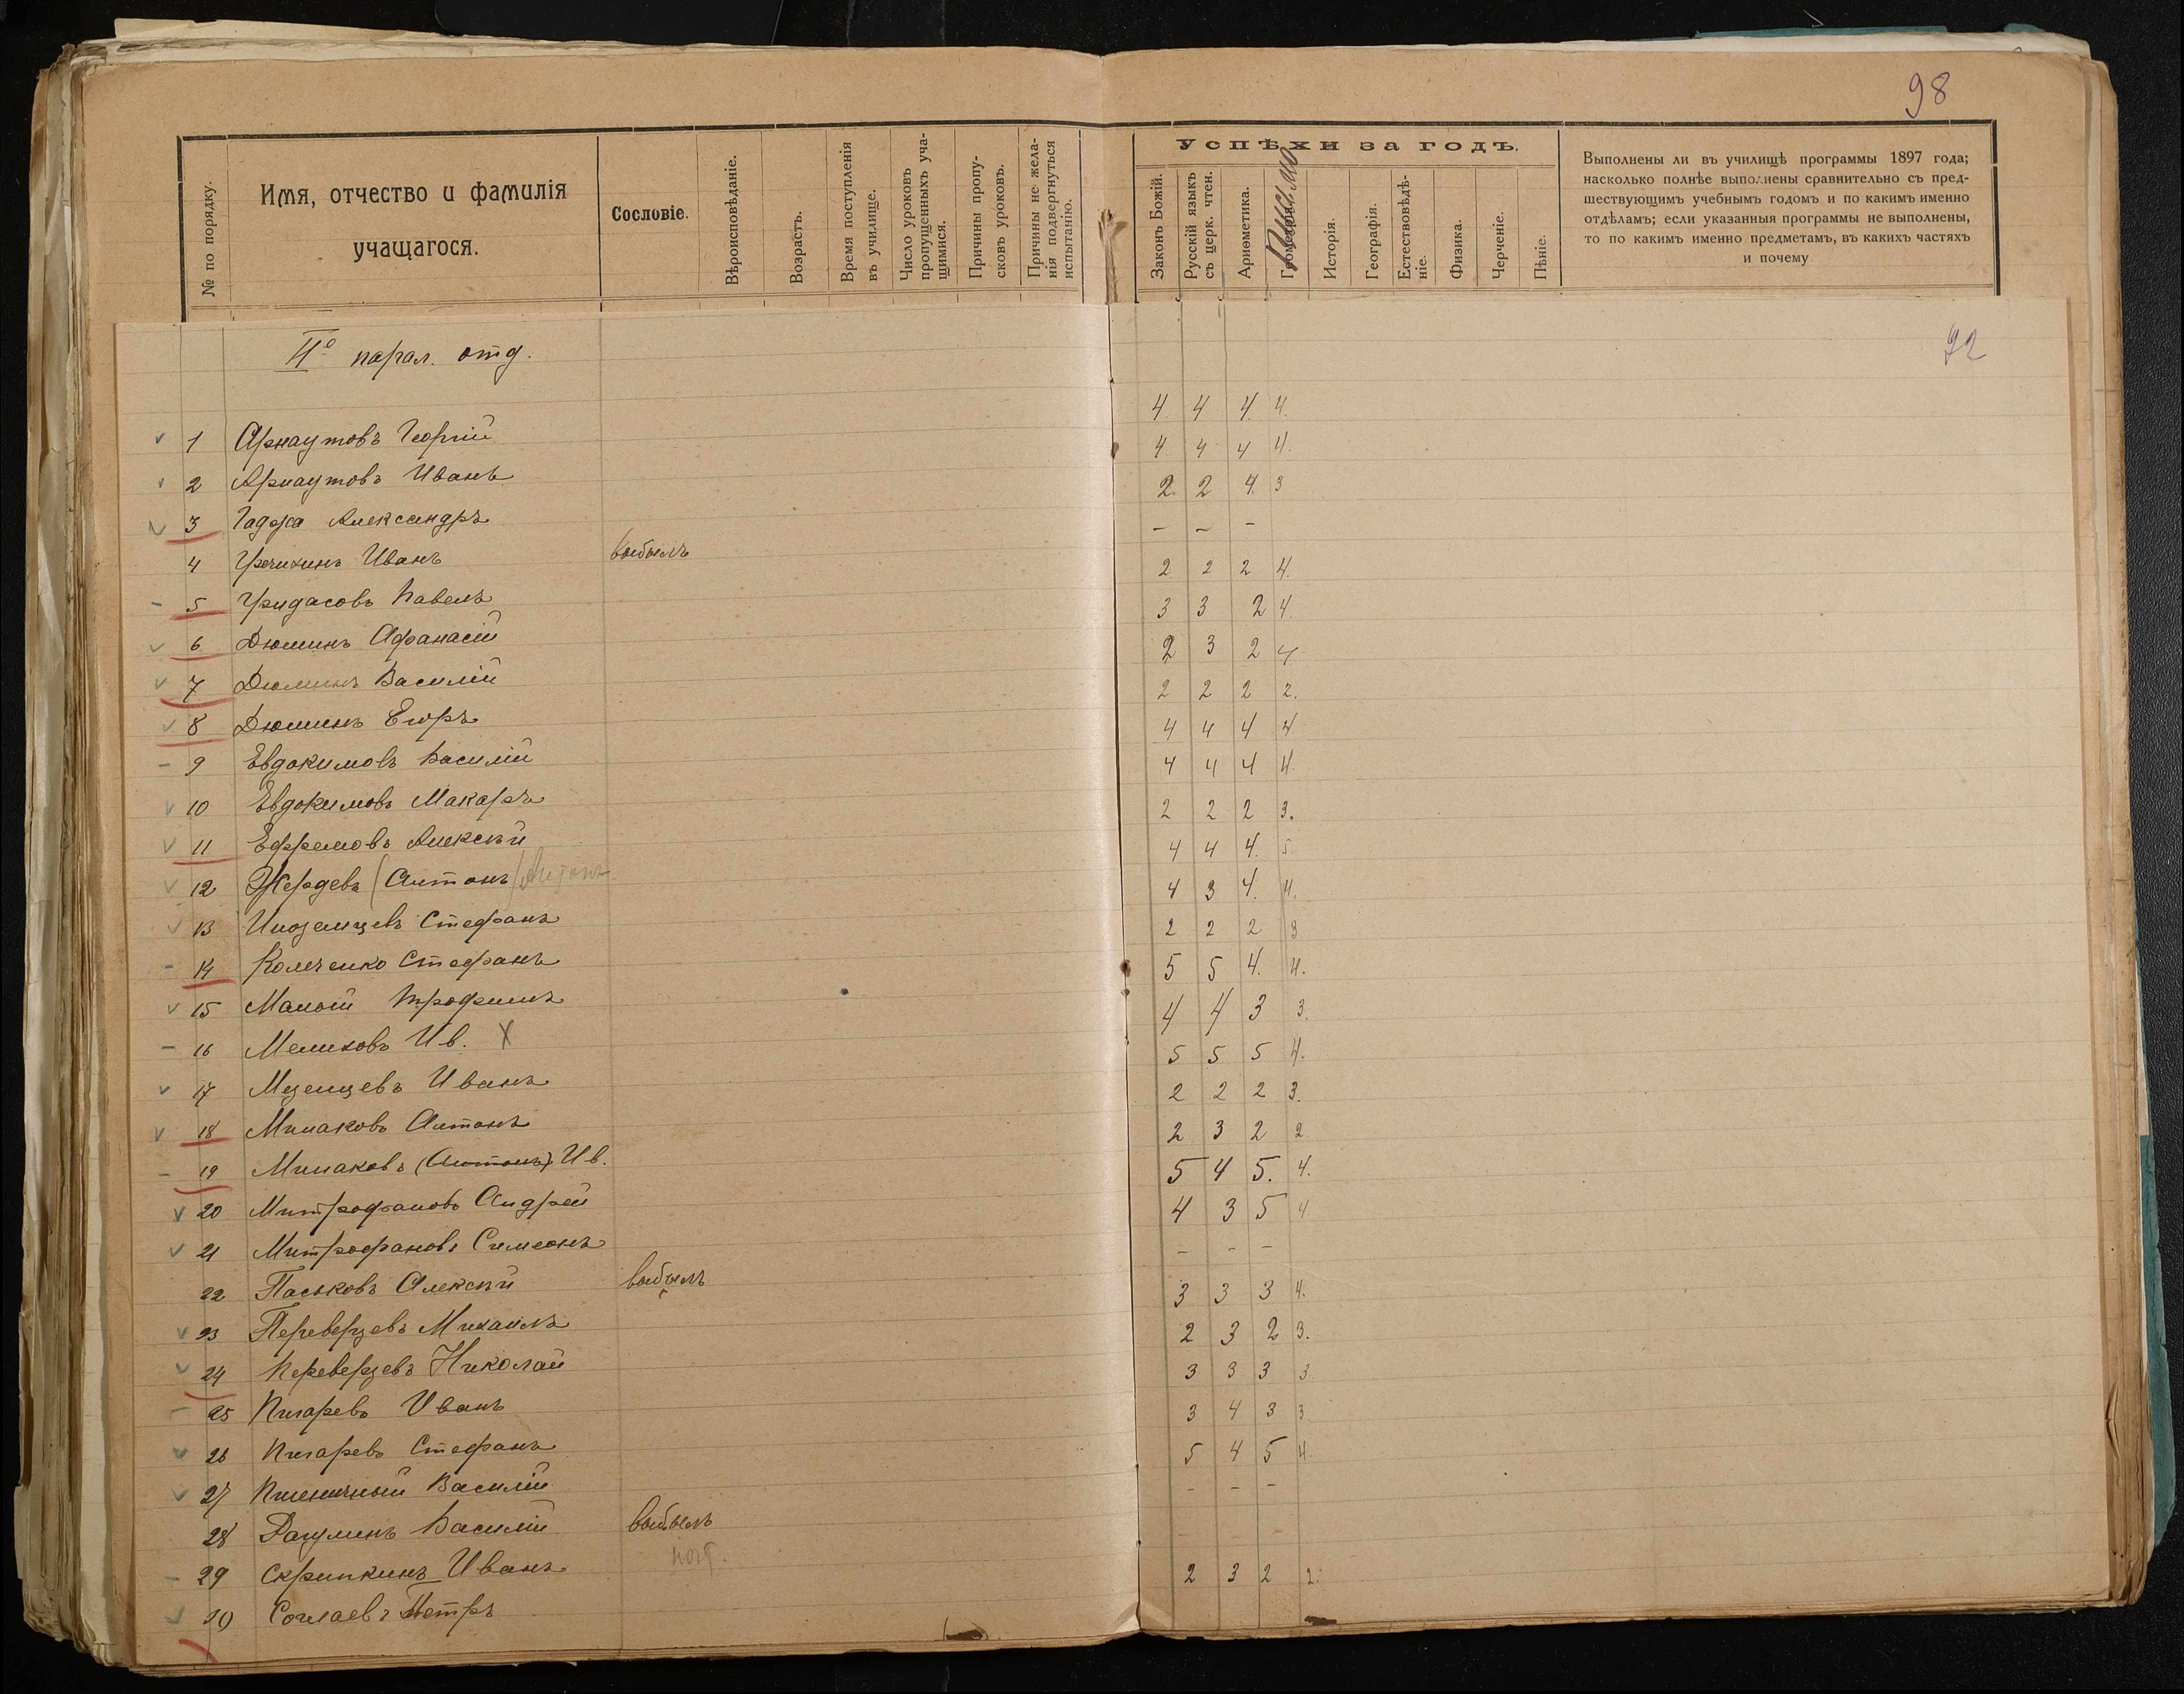 98
№ по порядку.
Имя, отчество и фамилія учащагося.
Сословіе.
Вѣроисповѣданіе.
Возрастъ.
Время поступленія въ училище.
Число уроковъ пропущенныхъ учащимися.
Причины пропусковъ уроковъ.
Причины не желанія подвергнуться испытанію.
Успѣхи за годъ.
Законъ Божій.
Русскій языкъ съ церк. чтен.
Ариөметика.
Письмо
Исторія.
Географія.
Естествовѣдѣніе.
Физика.
Черченіе.
Пѣніе.
Выполнены ли въ училищѣ программы 1897 года;
насколько полнѣе выполнены сравнительно съ пред-
шествующимъ учебнымъ годомъ и по какимъ именно
отдѣламъ; если указанныя программы не выполнены,
то по какимъ именно предметамъ, въ какихъ частяхъ
и почему
IIº парал. отд.
92
1 Арнаутовъ Георгій 4 4 4 4.
2 Арнаутовъ Иванъ 4 4 4 4.
3 Гаджа Александръ 2 2 4 3
4 Гречихинъ Иванъ выбылъ – – –
5 Гридасовъ Павелъ 2 2 2 4.
6 Дюминъ Афанасій 3 3 2 4.
7 Дюминъ Василій 2 3 2 4
8 Дюминъ Егоръ 2 2 2 2.
9 Евдокимовъ Василій 4 4 4 4
10 Евдокимовъ Макаръ 4 4 4 4.
11 Ефремовъ Алексѣй 2 2 2 3.
12 Жердевъ (Антонъ) Антонъ 4 4 4. 5.
13 Иноземцевъ Стефанъ 4 3 4. 4.
14 Комченко Стефанъ 2 2 2 3
15 Малый Трофимъ 5 5 4. 4.
16 Мелиховъ Ив. X 4 4 3 3.
17 Мезенцевъ Иванъ 5 5 5 4.
18 Минаковъ Антонъ 2 2 2 3.
19 Минаковъ (Антонъ) Ив. 2 3 2 2
20 Митрофановъ Андрей 5 4 5. 4.
21 Митрофановъ Симеонъ 4 3 5 4
22 Паськовъ Алексѣй выбылъ – – –
23 Переверзевъ Михаилъ 3 3 3 4.
24 Переверзевъ Николай 2 3 2 3.
25 Пигаревъ Иванъ 3 3 3 3.
26 Пигаревъ Стефанъ 3 4 3 3.
27 Пшеничный Василій 5 4 5 4.
28 Рагулинъ Василій выбылъ – – –
29 Скрипкинъ Иванъ
30 Петръ 2 3 2 2.